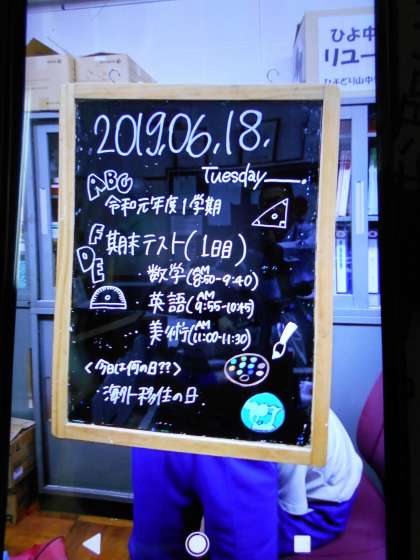 ひよ中
リユー
ひよどり山中
2019.06.18.
Tuesday
ABC
令和元年度1学期
DEF
期末テスト(1日目)
数学(AM 8:50-9:40)
英語(AM 9:55-10:45)
美術(AM 11:00-11:30)
<今日は何の日??>
海外移住の日.